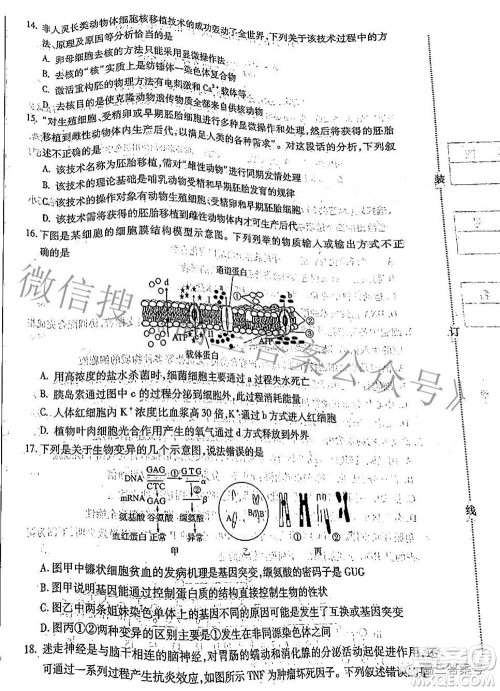 14. 非人灵长类动物体细胞核移植技术的成功轰动了全世界,下列关于该技术过程中的方
法、原理及原因等分析恰当的是
A. 卵母细胞去核的方法只能采用显微操作法
B. 去核的“核”实质上是纺锤体—染色体复合物
C. 激活重构胚的物理方法有电刺激和Ca²⁺载体等
D. 去核目的是使克隆动物遗传物质全部来自供体动物
15. “对生殖细胞、受精卵或早期胚胎细胞进行多种显微操作和处理,然后将获得的胚胎
移植到雌性动物体内生产后代,以满足人类的各种需求”。对这段话的分析,叙
述不正确的是
A. 该技术名称为胚胎移植,需对“雌性动物”进行同期发情处理
B. 该技术的理论基础是哺乳动物受精和早期胚胎发育的规律
C. 该技术的操作对象有动物生殖细胞、受精卵和早期胚胎细胞等
D. 该技术需将获得的胚胎移植到雌性动物体内才可生产后代
16. 下图是某细胞的细胞膜结构模型示意图。下列列举的物质输入或输出方式不正
确的是
通道蛋白
a
b
c
①
②
③
ATP
ATP
载体蛋白
A. 用高浓度的盐水杀菌时,细菌细胞主要通过a过程失水死亡
B. 胰岛素通过图中c的过程分泌到细胞外,此过程消耗能量
C. 人体红细胞内K⁺浓度比血浆高30倍,K⁺通过b方式进入红细胞
D. 植物叶肉细胞光合作用产生的氧气通过d方式排出细胞外
17. 下列是关于生物变异的几个示意图,说法错误的是
DNA GAG ① GTG
CTC α
mRNA GAG ② β
氨基酸 谷氨酸 缬氨酸
血红蛋白 正常 异常
甲
A
B
B
b
乙
①
②
丙
A. 图甲中镰状细胞贫血的发病机理是基因突变,缬氨酸的密码子是GUG
B. 图甲说明基因能通过控制蛋白质的结构直接控制生物的性状
C. 图乙中两条姐妹染色单体上的基因不同是发生了互换或基因突变
D. 图丙中①②两种变异的区别主要在于是否发生在同源染色体之间
18. 迷走神经是与脑干相连的脑神经,对胃肠的蠕动和消化腺的分泌活动起促进作用,还
可通过一系列过程产生抗炎效应,如图所示TNF为肿瘤坏死因子。下列叙述错误的是
装
订
线
微信搜
答案公众号》